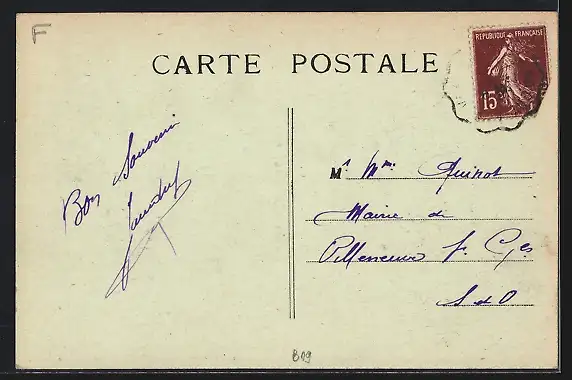 F
CARTE POSTALE
REPUBLIQUE FRANÇAISE
15
Bon Souvenir
Mr Mme Quinot
Mairie de
Villeneuve St Ges
S et O
B09